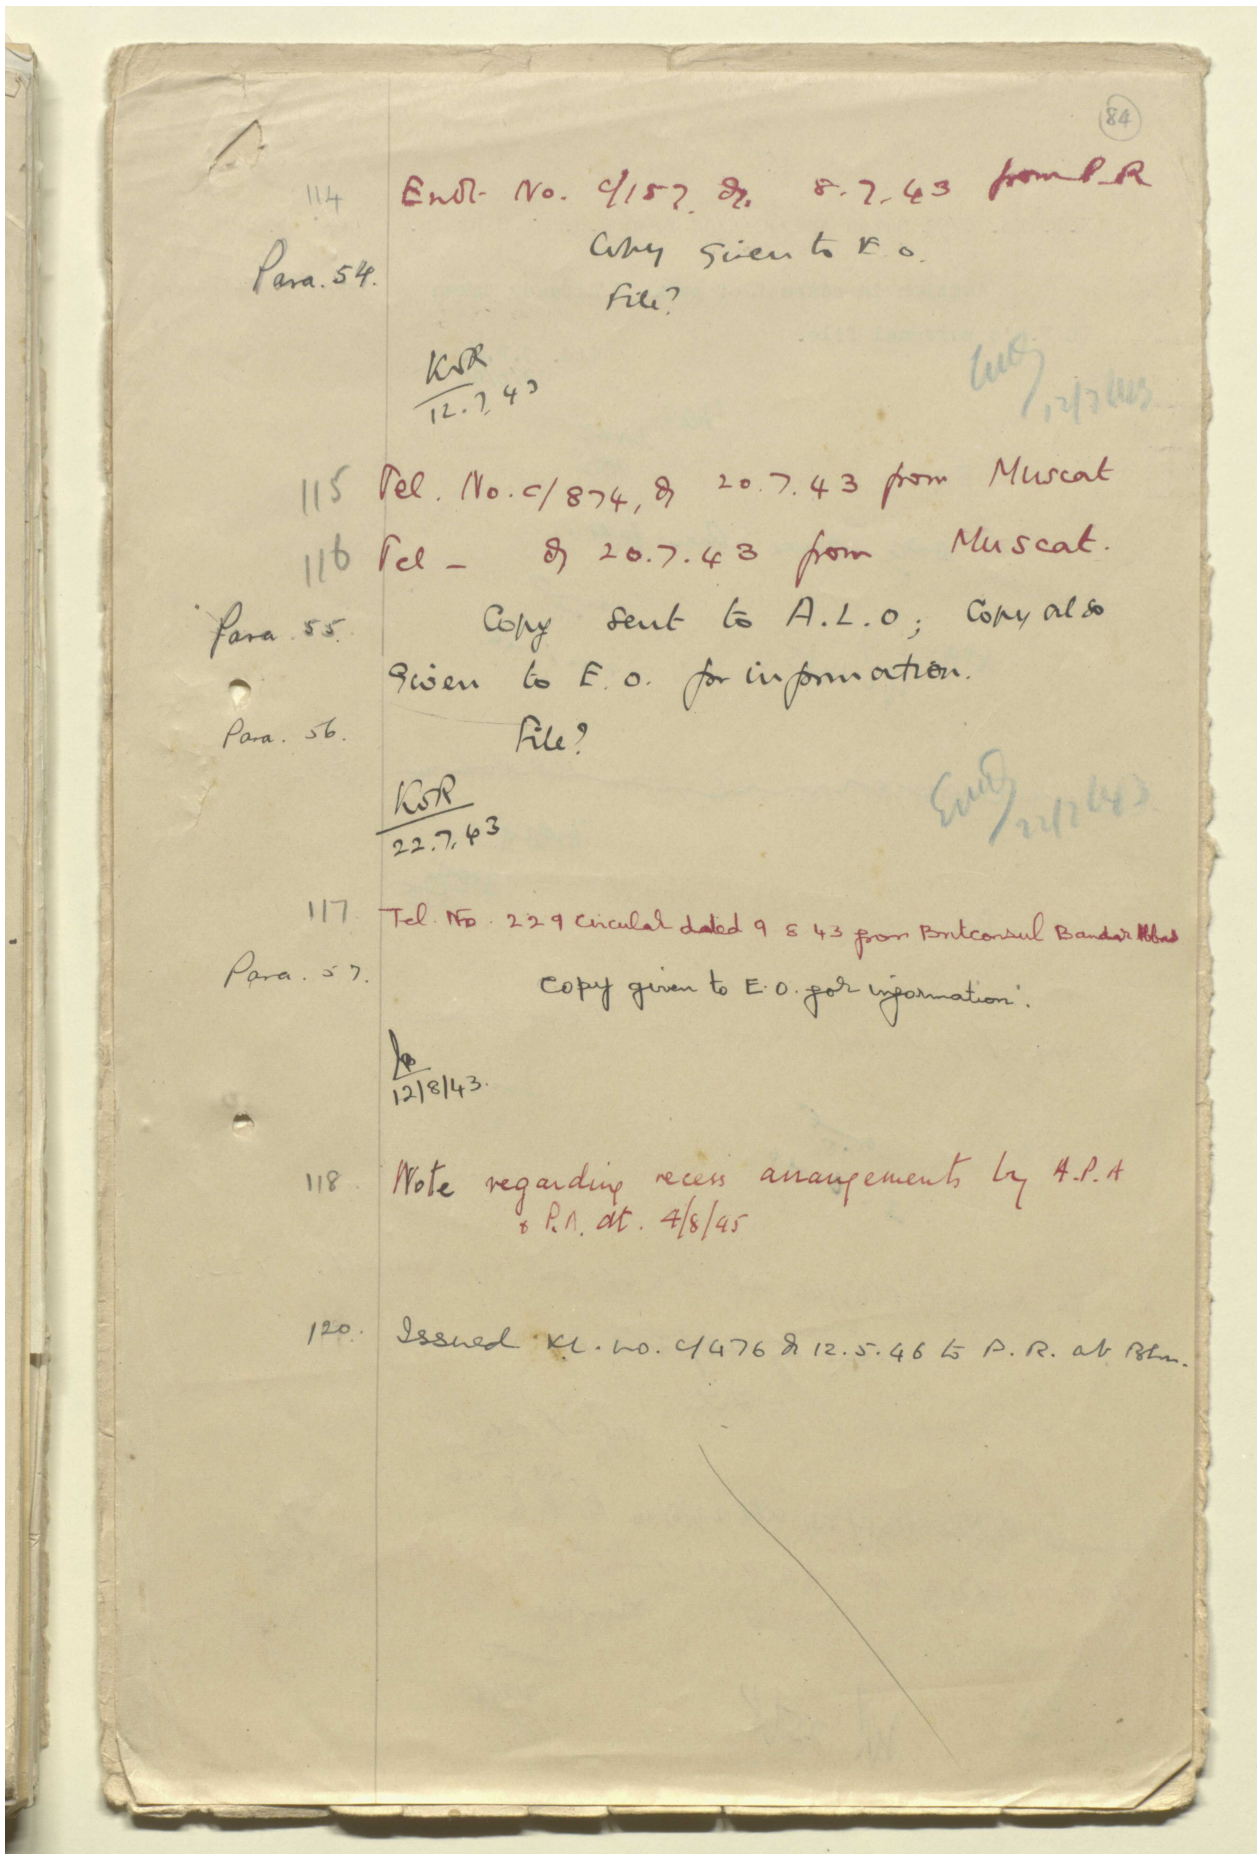 84
114 Endt. No. C/157 dt. 8.7.43 from P.R
Copy given to E.O.
Para. 54.
File?
KSR
12.7.43
12/7/43
115 Tel. No. C/874, dt 20.7.43 from Muscat
116 Tel - dt 20.7.43 from Muscat.
Para 55. Copy sent to A.L.O; Copy also
given to E.O. for information.
Para. 56. File?
KSR
22.7.43
22/7/43
117 Tel. No. 229 circular dated 9 8 43 from Britconsul Bandar Abbas
Para. 57. Copy given to E.O. for information.
12/8/43.
118 Note regarding recess arrangements by A.P.A
& P.A. dt. 4/8/45
120. Issued no. C/476 dt 12.5.46 to P.R. at Bhn.